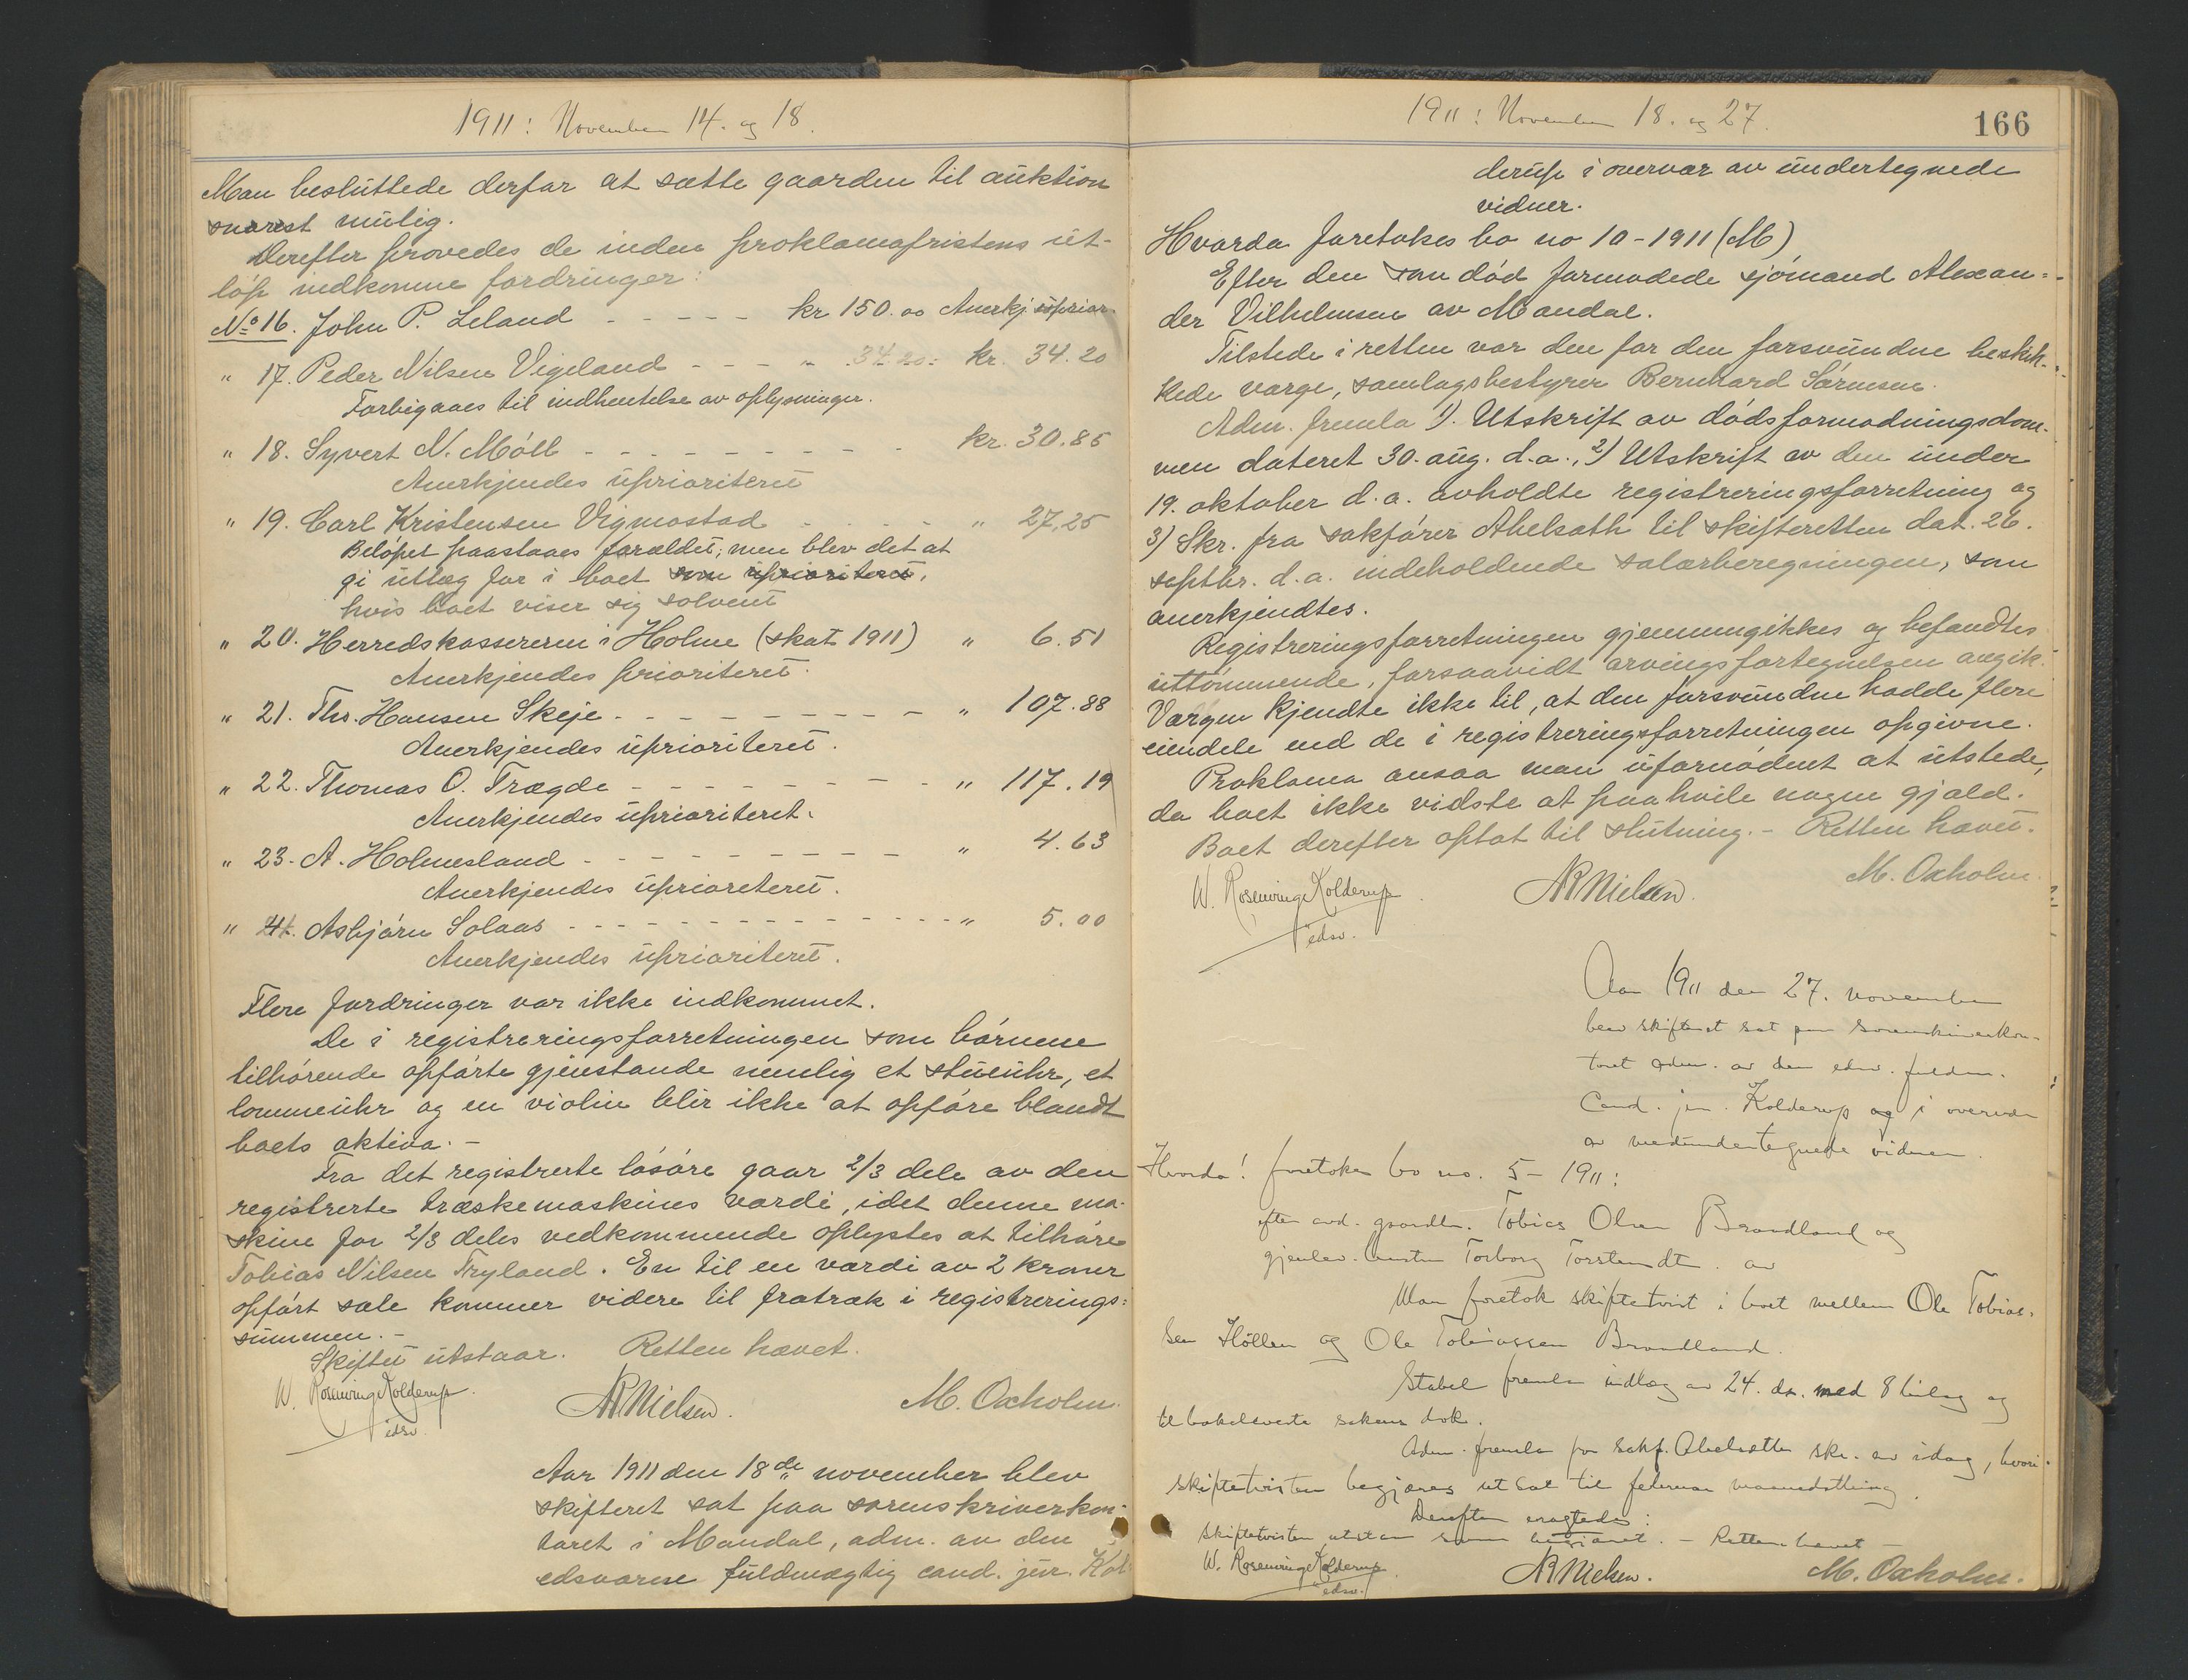 1911: November 14. og 18.
Man besluttede derfor at sætte gaarden til auktion
snarest mulig.
Derefter prøvedes de inden proklamafristens ut-
løp indkomne fordringer:
No 16. John P. Leland - - - - - kr 150.00 Anerkj uprior.
" 17. Peder Nilsen Vigeland - - - - " 34.20: kr. 34.20
Forbigaaes til indhentelse av oplysninger.
" 18. Syvert N. Möll - - - - - - - - - kr. 30.85
Anerkjendes uprioritert
" 19. Carl Kristensen Vigmostad - - - - " 27,25
Beløpet paastaaes forældet; men blev det at
gi utlæg for i boet som uprioritert,
hvis boet viser sig solvent
" 20. Herredskassereren i Holme (skat 1911) " 6.51
Anerkjendes prioritert.
" 21. Thr. Hansen Skeje - - - - - - - - " 107.88
Anerkjendes uprioritert.
" 22. Thomas O. Trægde - - - - - - - " 117.19
Anerkjendes uprioritert.
" 23. A. Holmesland - - - - - - - - - " 4.63
Anerkjendes uprioritert.
" Asbjørn Solaas - - - - - - - - - - - " 5.00
Anerkjendes uprioritert.
Flere fordringer var ikke indkommet.
De i registreringsforretningen som børnene
tilhørende opførte gjenstande nemlig et stueuhr, et
lommeuhr og en violin blir ikke at opføre blandt
boets aktiva. -
Fra det registrerte løsøre gaar 2/3 dele av den
registrerte træskemaskines værdi, idet denne ma-
skine for 2/3 deles vedkommende oplystes at tilhøre
Tobias Nilsen Tryland. En til en værdi av 2 kroner
opført sæle kommer videre til fratræk i registrerings:
summen. -
Skiftet utstaar. Retten hævet.
W. Rosenvinge Kolderup
edsv.
NNielsen.
M. Oxholm.
Aar 1911 den 18de november blev
skifteret sat paa sorenskriverkon-
toret i Mandal, adm. av den
edsvorne fuldmægtig cand. jur. Kol-
1911: November 18. og 27.
166
derup i overvær av undertegnede
vidner.
Hvorda foretokes bo no 10-1911 (M)
Efter den som død formodede sjømand Alexan=
der Vilhelmsen av Mandal.
Tilstede i retten var den for den forsvundne beskik-
kede værge, samlagsbestyrer Bernhard Sørensen.
Adm. fremla 1). Utskrift av dødsformodningsdom-
men dateret 30. aug. d.a., 2) Utskrift av den under
19. oktober d.a. avholdte registreringsforretning og
3) Skr. fra sakfører Abelsøth til skifteretten dat. 26.
septbr. d.a. indeholdende salærberegningen, som
anerkjendtes.
Registreringsforretningen gjennemgikkes og befandtes
uttømmende, forsaavidt arvingsfortegnelsen angik.
Værgen kjendte ikke til, at den forsvundne hadde flere
eiendele end de i registreringsforretningen opgivne.
Proklama ansaa man ufornødent at utstede,
da boet ikke vidste at paahvile nogen gjæld.
Boet derefter optat til slutning. - Retten hævet.
W. Rosenvinge Kolderup
edsv.
NNielsen.
M. Oxholm.
Aar 1911 den 27. november
blev skifteret sat paa sorenskriverkon-
toret adm. av den edsv. fuldm.
Cand. jur. Kolderup og i overvær
av medundertegnede vidner.
Hvorda! foretokes bo no. 5-1911:
efter avd. gaardbr. Tobias Olsen Brandland og
gjenlev. hustru Torborg Torstensdtr. av
Man foretok skiftetvist i boet mellem Ole Tobias-
sen Høllen og Ole Tobiassen Brandland.
Stabel fremla indlæg av 24. ds. med 8 bilag og
tilbakeleverte sakens dok.
Adm. fremla fra sakf. Abelsæth skr. av idag, hvori
skiftetvisten begjæres utsat til februar maanedsting.
Derefter eragtedes:
Skiftetvisten utstaar som begjæret. - Retten hævet -
W. Rosenvinge Kolderup
edsv.
NNielsen.
M. Oxholm.